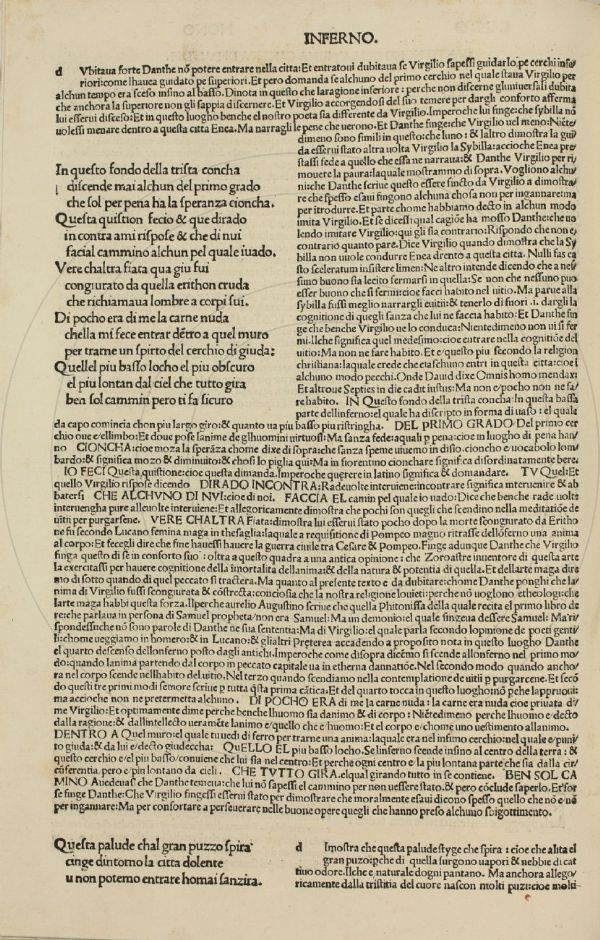 INFERNO.
d Vbitaua forte Danthe nõ potere entrare nella citta: Et entratoui dubitaua se Virgilio sapessi guidarlo. pe cerchi infe/
riori: come lhauea guidato pe superiori. Et pero domanda se alchuno del primo cerchio nel quale staua Virgilio per
alchun tempo era sceso insino al basso. Dinota in questo che laragione inferiore: perche non discerne gluniuersali dubita
che anchora la superiore non gli sappia discernere. Et Virgilio accorgendosi del suo temere per dargli conforto afferma
lui esserui disceso: Et in questo luogho benche el nostro poeta sia differente da Virgilio. Imperoche lui finge: che sybilla nõ
uolessi menare dentro a questa citta Enea. Ma narragli le pene che uerono. Et Danthe finge: che Virgilo uel meno: Niẽte
dimeno sono simili in questo: che luno: & laltro dimostra la gui
da esserui stato altra uolta Virgilio la Sybilla: accioche Enea pre
stassi fede a quello che essa ne narraua: & Danthe Virgilio per ri/
mouere la paura: laquale mostrammo di sopra. Vogliono alchu/
ni: che Danthe scriue questo essere fincto da Virgilio a dimostra/
re che spesso esaui fingono alchuna chosa non per ingannare: ma
per itrodurre. Et parte chome habbiamo decto in alchun modo
imita Virgilio. Et se dicessi qual cagiõe ha mosso Danthe: che uo
lendo imitare Virgilio: qui gli sia contrario: Rispondo che non e
contrario quanto pare. Dice Virgilio quando dimostra che la Sy
billa non uuole condurre Enea drento a questa citta. Nulli fas ca
sto sceleratum insistere limen: Ne altro intende dicendo che a nes/
simo buono sia lecito fermarsi in quella: Se non che nessuno puo
esser buono che si fermi: cioe facci habito nel uitio. Ma parue alla
sybilla fussi meglio narrargli euitii: & tenerlo di fuori .i. dargli la
cognitione di quegli sanza che lui ne faccia habito: Et Danthe fin
ge che benche Virgilio ue lo conduca: Nientedimeno non ui si fer
mi. Ilche significa quel medesimo: cioe entrare nella cognitiõe del
uitio: Ma non ne fare habito. Et e/questo piu secondo la religion
christiana: laquale crede che etaschuno entri in questa citta: cioe i
alchuno modo pecchi. Onde Dauid dixe Omnis homo mendax:
Et altroue Septies in die cadit iustus: Ma non e/pocho non ne fa/
re habito. IN Questo fondo della trista concha: In questa bassa
parte dellinferno: el quale ha discripto in forma di uaso: el quale
In questo fondo della trista concha
discende mai alchun del primo grado
che sol per pena ha la speranza cioncha.
Questa quistion fecio & que dirado
in contra ami rispose & che di nui
facial cammino alchun pel quale iuado.
Vere chaltra fiata qua giu fui
congiurato da quella erithon cruda
che richiamaua lombre a corpi sui.
Di pocho era di me la carne nuda
chella mi fece entrar dẽtro a quel muro
per trarne un spirto del cerchio di giuda:
Quellel piu basso locho el piu obscuro
el piu lontan dal ciel che tutto gira
ben sol cammin pero ti fa sicuro
da capo comincia chon piu largo giro: & quanto ua piu basso piu ristringha. DEL PRIMO GRADO. Del primo cer
chio oue e/ellimbo: Et doue pose lanime de glhuomini uirtuosi: Ma sanza fede: aquali p pena: cioe in luogho di pena han/
no CIONCHA: cioe moza la sperãza chome dixe di sopra: che sanza speme uiuemo in disio. cioncho e/uocabolo lom
bardo: & significa mozo & diminuito: & chosi lo piglia qui: Ma in fiorentino cionchare significa disordinatamente bere.
IO FECI Questa quistione: cioe questa dimanda. Imperoche querere in latino significa & domandare. TV Quel: Et
quello Virgilio rispose dicendo DIRADO INCONTRA: Rade uolte interuiene: incontrare significa interuenire & ab
batersi CHE ALCHVNO DI NVI: cioe di noi. FACCIA EL camin pel quale io uado: Dice che benche rade uolte
interuengha pure alleuolte interuiene: Et allegoricamente dimostra che pochi son quegli che scendino nella meditatiõe de
uitii per purgarsene. VERE CHALTRA Fiata: dimostra lui esserui stato pocho dopo la morte scongiurato da Eritho
ne fu secondo Lucano femina maga in thesaglia: laquale a requisitione di Pompeo magno ritrasse dellõferno una anima
al corpo: Et fecegli dire che fine hauessi lhauere la guerra ciuile tra Cesare & Pompeo. Finge adunque Danthe che Virgilio
finga questo di se in conforto suo: oltra a questo quadra a una antica opinione: che Zoroastre inuentore di questa arte
la exercitassi per hauere cognitione della imortalita dellanima: & della natura & potentia di quella. Et dellarte maga dire
mo di sotto quando di quel peccato si tractera. Ma quanto al presente texto e da dubitare: chome Danthe ponghi che la/
nima di Virgilio fussi scongiurata & cõstrecta: conciosia che la nostra religione louieti: perche nõ uogliono etheologi: che
larte maga habbi questa forza. Ilperche aurelio Augustino scriue che quella Phitonissa della quale recita el primo libro de
re: che parlaua in persona di Samuel propheta/non era Samuel: Ma un demonio: el quale fingeua dessere Samuel: Ma ri
spondessi: che nõ sono parole di Danthe ne sua sententia: Ma di Virgilio: el quale parla secondo lopinione de poeti genti/
li: chome ueggiamo in homero: & in Lucano: & glialtri Pręterea accadendo a proposito nota in questo luogho Danthe
el quarto descenso dellonferno posto dagli antichi. Imperoche come disopra dicẽmo si scende allonferno nel primo mo/
do: quando lanima partendo dal corpo in peccato capitale ua in etherna dannatiõe. Nel secondo modo quando ancho/
ra nel corpo scende nellhabito del uitio. Nel terzo quando scendiamo nella contemplatione de uitii p purgarcene. Et secõ
do questi tre primi modi semore scriue p tutta q̃sta prima cãtica. Et del quarto tocca in questo luogho: nõ pche lappruoui:
ma accioche non ne pretermetta alchuno. DI POCHO ERA di me la carne nuda: la carne era nuda cioe priuata dĩ
me Virgilio: Et optimamente dime perche lhuomo sia danimo & di corpo: Niẽtedimeno perche lhuomo e/decto
dalla ragione: & dallintellecto ueramẽte lanimo e/quello che e/huomo: Et el corpo e/chome uno uestimento allanimo.
DENTRO A Quel muro: el quale tu uedi di ferro per trarne una anima: laquale era nel infimo cerchio: nel quale e/puni/
to giuda: & da lui e/decto giudeccha: QVELLO EL piu basso locho. Se linferno scende insino al centro della terra: &
questo cerchio e/el piu basso/conuiene che lui sia nel centro: Et perche ogni centro e/la piu lontana parte che sia dalla cir/
cũferentia. pero e/piu lontano da cieli. CHE TVTTO GIRA. elqual girando tutto in se contiene. BEN SOL CA
MINO Auedenasi che Danthe temeua: che lui nõ sapessi el cammino per non uessere stato. & pero cõclude saperlo. Et for
se finge Danthe: Che Virgilio fingessi esserui stato per dimostrare che moralmente esaui dicono spesso quello che nõ e/nõ
per ingannare: Ma per confortare a perseuerare nelle buone opere quegli che hanno preso alchuno sbigottimento.
Questa palude chal gran puzzo spira
cinge dintorno la citta dolente
u non potemo entrare homai sanzira.
d Imostra che questa palude styge che spira: cioe che alita el
gran puzo: pche di quella surgono uapori & nebbie di cat
tiuo odore. Ilche e naturale dogni pantano. Ma anchora allego/
ricamente dalla tristitia del cuore nascon molti puzi: cioe molti